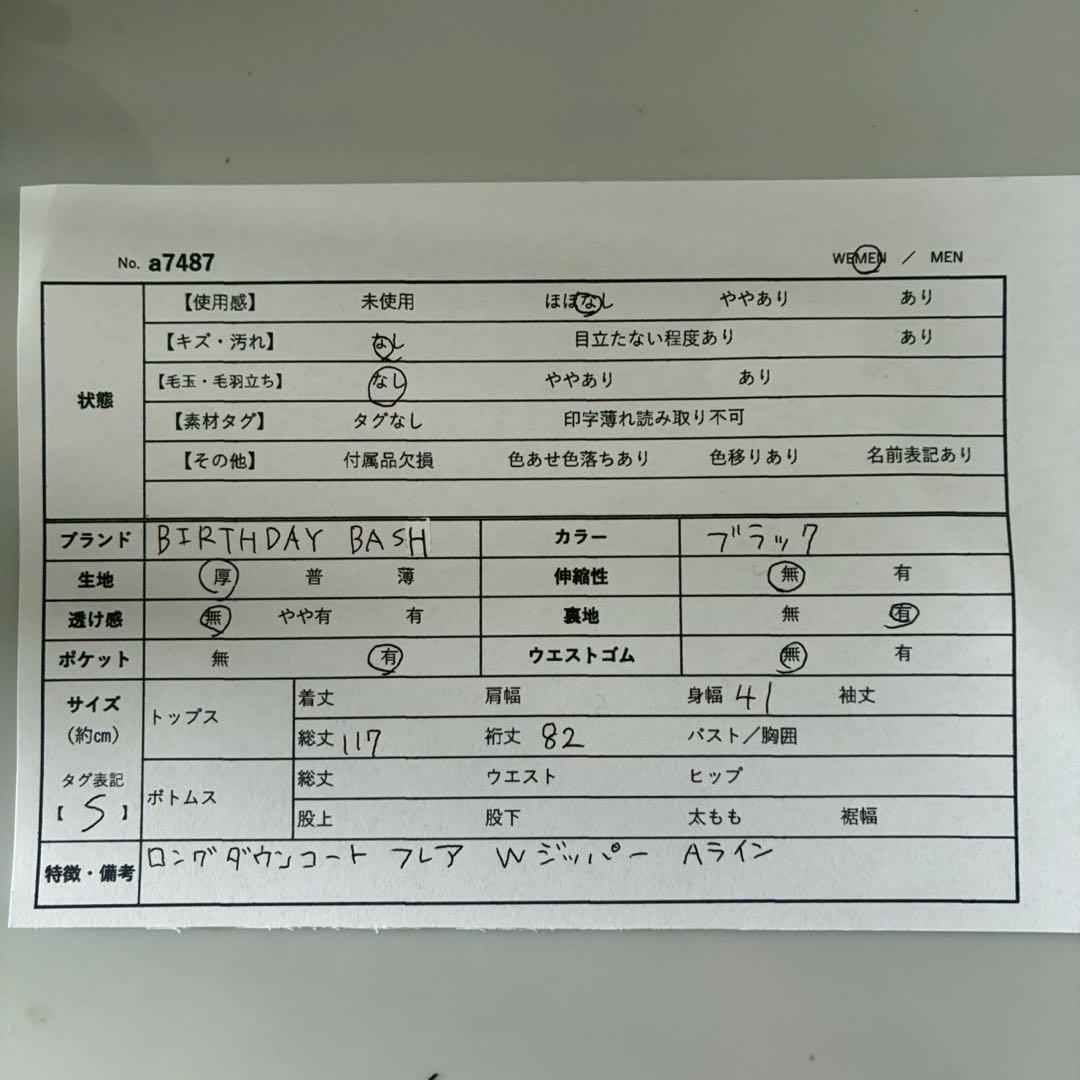 No. a7487 WEMEN / MEN
状態
【使用感】 未使用 ほぼなし ややあり あり
【キズ・汚れ】 なし 目立たない程度あり あり
【毛玉・毛羽立ち】 なし ややあり あり
【素材タグ】 タグなし 印字薄れ読み取り不可
【その他】 付属品欠損 色あせ色落ちあり 色移りあり 名前表記あり
ブランド BIRTHDAY BASH カラー ブラック
生地 厚 普 薄 伸縮性 無 有
透け感 無 やや有 有 裏地 無 有
ポケット 無 有 ウエストゴム 無 有
サイズ
(約cm)
タグ表記
【 S 】
トップス
着丈 肩幅 身幅 41 袖丈
総丈 117 裄丈 82 バスト／胸囲
ボトムス
総丈 ウエスト ヒップ
股上 股下 太もも 裾幅
特徴・備考 ロングダウンコート フレア Wジッパー Aライン